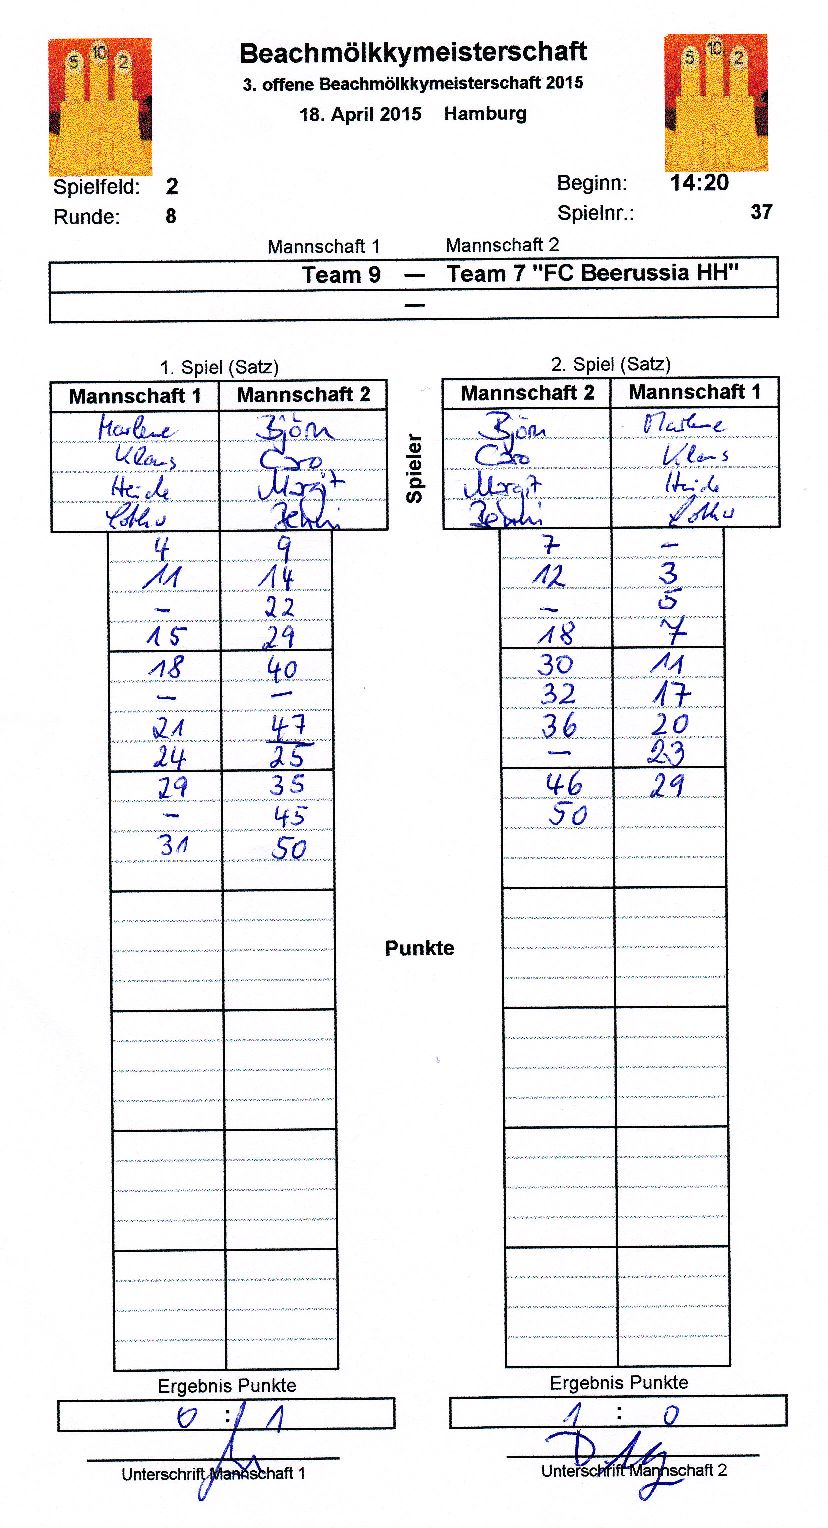 5 10 2
5 10 2
Beachmölkkymeisterschaft
3. offene Beachmölkkymeisterschaft 2015
18. April 2015 Hamburg
Spielfeld: 2
Beginn: 14:20
Runde: 8
Spielnr.: 37
Mannschaft 1 Mannschaft 2
Team 9 — Team 7 "FC Beerussia HH"
—
1. Spiel (Satz) 2. Spiel (Satz)
Mannschaft 1 Mannschaft 2 Mannschaft 2 Mannschaft 1
Spieler
Marlene Björn Björn Marlene
Klaus Caro Caro Klaus
Heide Margit Margit Heide
4 9 7 –
11 14 12 3
– 22 – 5
15 29 18 7
18 40 30 11
– – 32 17
21 47 36 20
24 25 – 23
29 35 46 29
– 45 50
31 50
Punkte
Ergebnis Punkte Ergebnis Punkte
0 : 1 1 : 0
Unterschrift Mannschaft 1 Unterschrift Mannschaft 2